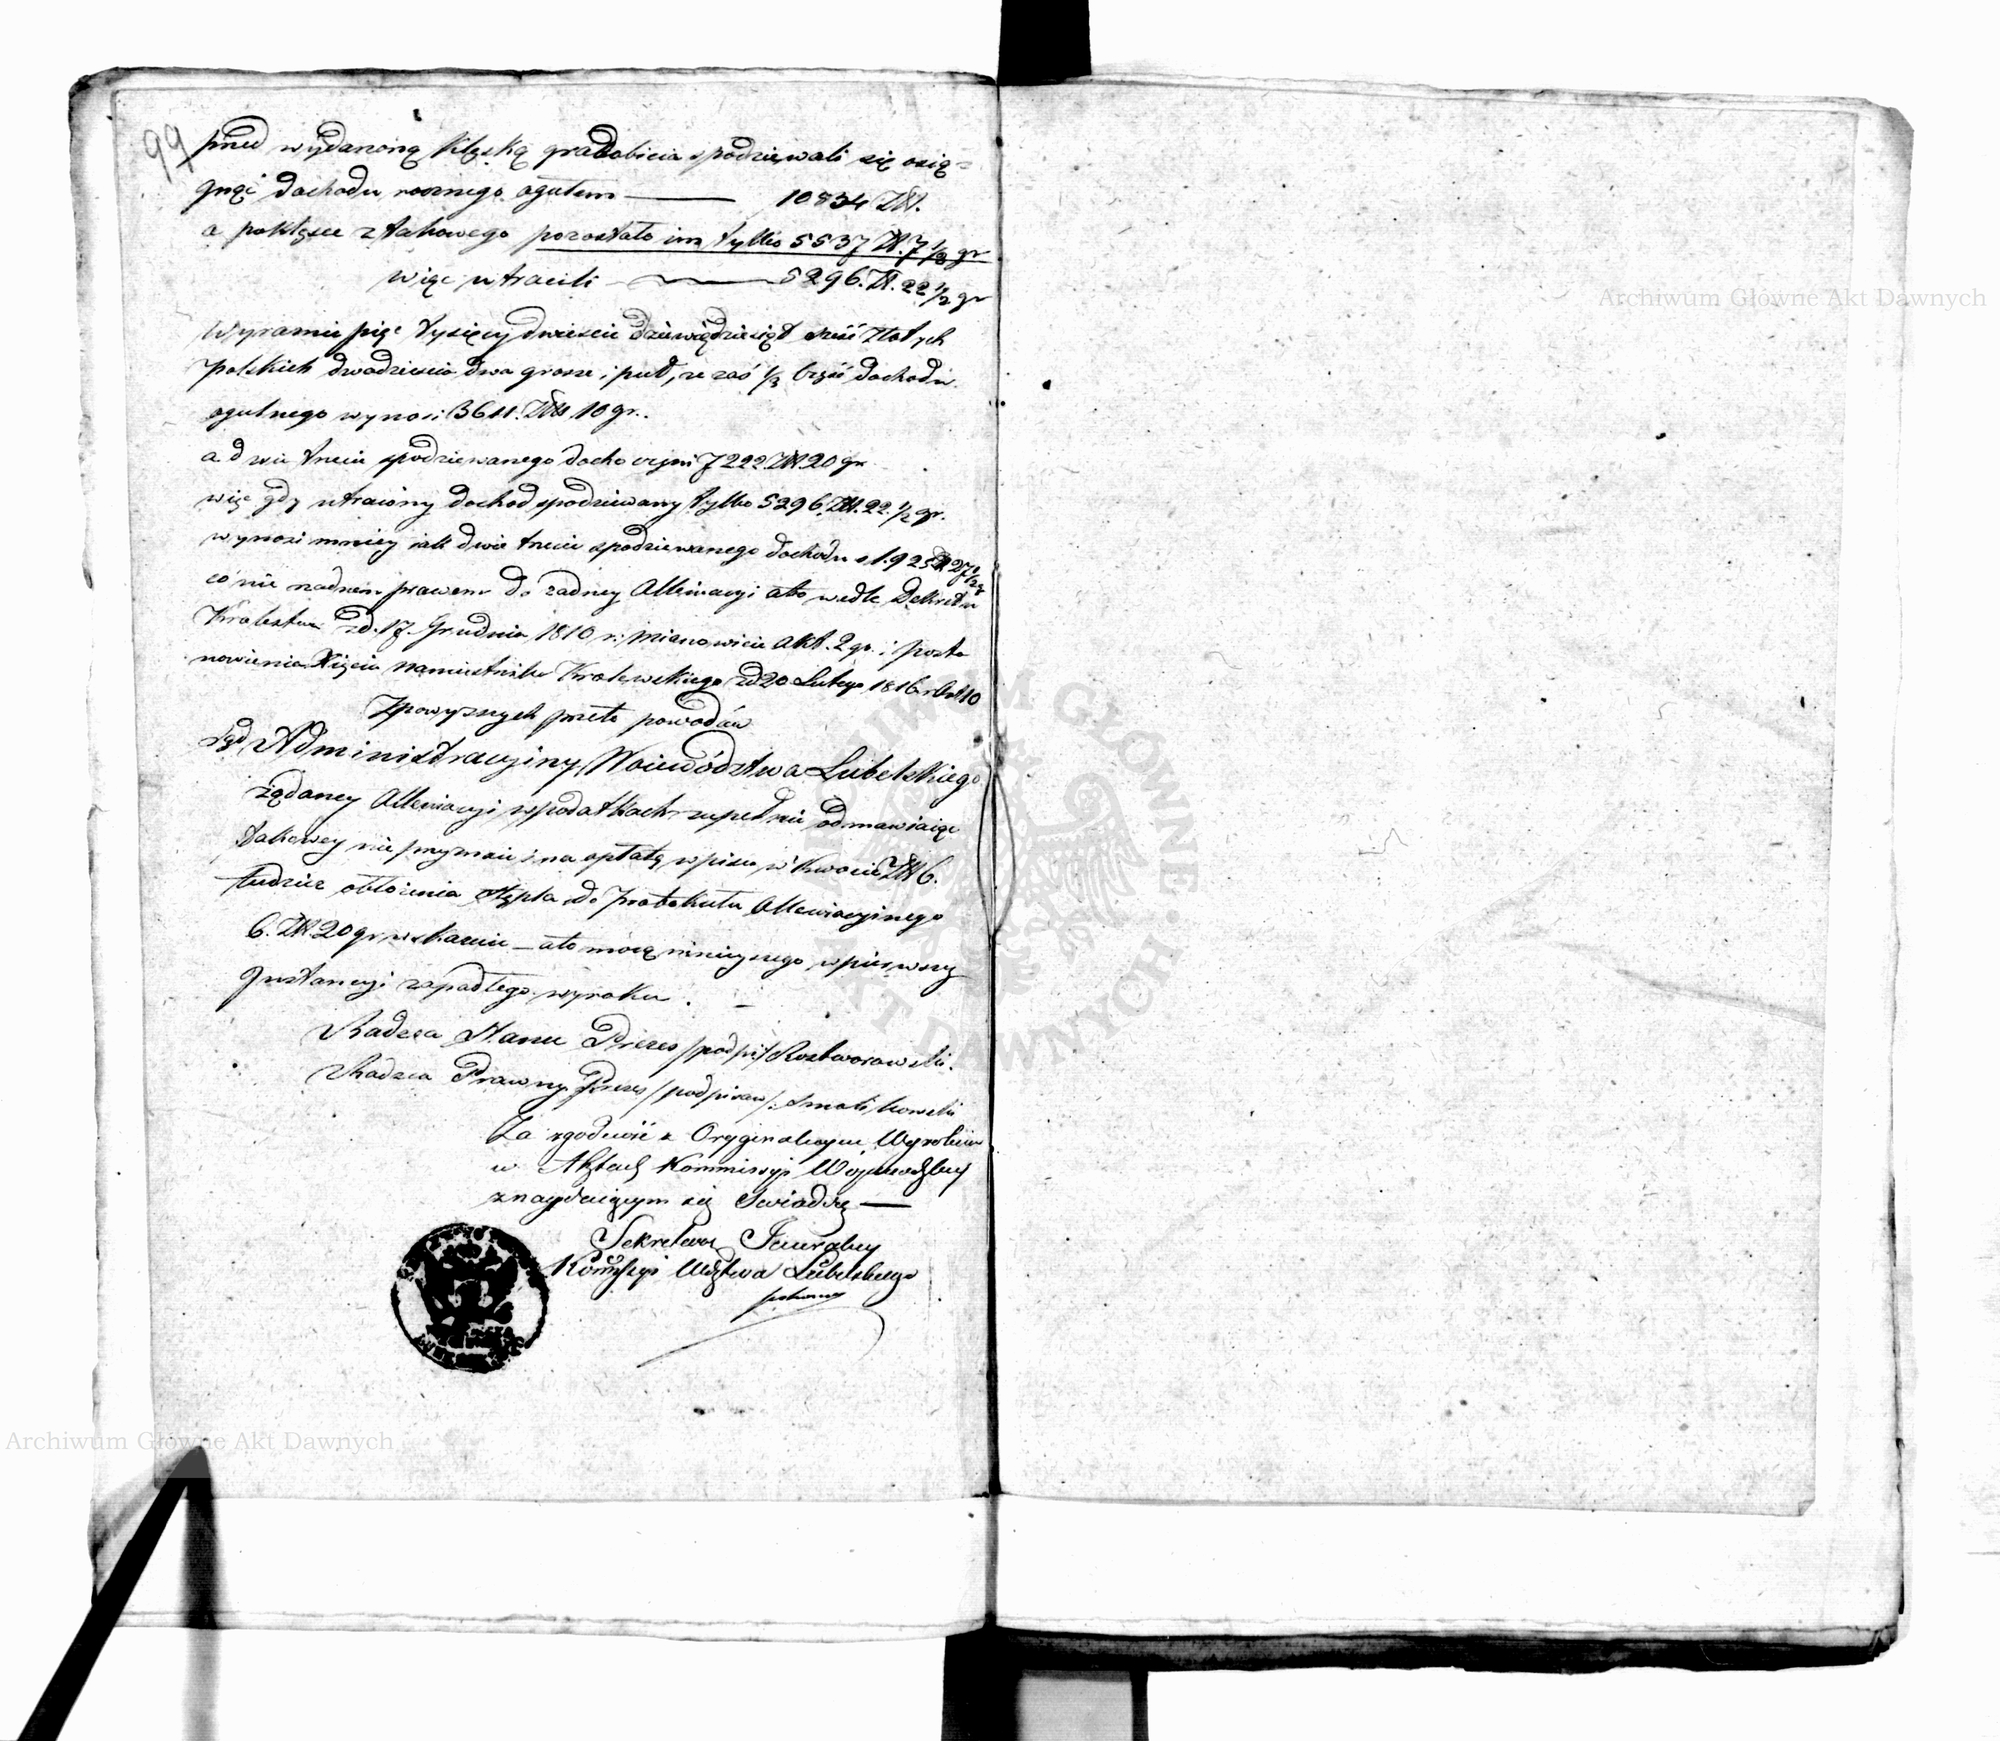 99
przed wydarzoną klęską gradobicia spodziewali się osią=
gnąć dochodu rocznego ogułem — 10834 Złt.
a po klęsce z takowego pozostało im tylko 5537 Zł. 7 1/2 gr
więc utracili — 5296. Zł. 22 1/2 gr
Wyraznie pięć tysięcy dwieście dziewięćdziesiąt sześć złotych
polskich dwadzieścia dwa grosze i puł, że zaś 1/3 część dochodu
ogulnego wynosi 3611. Złt. 10 gr.
a dwie trzecie spodziewanego docho czyni 7222 Złt 20 gr
więc gdy utracony dochod spodziewany tylko 5296. Złt. 22. 1/2 gr.
wynosi mniey jak dwie trzecie spodziewanego dochodu o 1.925 Zł 27 1/2 g
co nie nadaie prawem do żadney Allewiacyi a to wedle Dekretu
Krolestwa z d. 17. Grudnia 1810 r. mianowicie Akt. 2 go. i posta
nowienia Xięcia Namiestnika Krolewskiego z d 20 Lutego 1816 r. Art 10
Z powyzszych przeto powodów
Rząd Administracyiny Woiewództwa Lubelskiego
żądaney Allewiacyi w podatkach zupełnie odmawiaiąc
takowey nie przyznaie i na opłatę wpisu w kwocie Złt 6.
tudzież obłożenia stępla do protokułu Allewiacyinego
6. Złt 20 gr wskazuie — a to mocą ninieyszego w pierwszey
Instancyi zapadłego wyroku. —
Radzca Stanu Prezes /podpis/ Rostworowski.
Radzca Prawny Prezes /podpisany/: Smolikowski
Za zgodność z Oryginalnym Wyrokiem
w Aktach Kommissyi Woiewodzkiey
znayduiącym się Swiadczę —
Sekretarz Jeneralny
Kommissyi Wdztwa Lubelskiego
Archiwum Główne Akt Dawnych
Archiwum Główne Akt Dawnych
ARCHIWUM GŁÓWNE AKT DAWNYCH